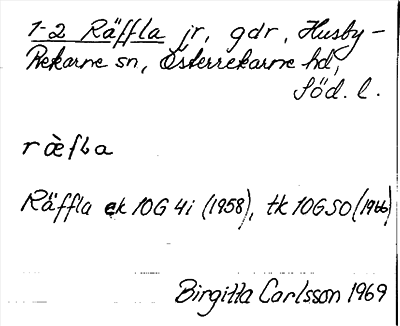 1-2 Räffla jr, gdr, Husby-
Rekarne sn, Österrekarne hd,
Söd. l.
ræ̀fLa
Räffla ek 10G 4i (1958), tk 10G SO (1966)
Birgitta Carlsson 1969